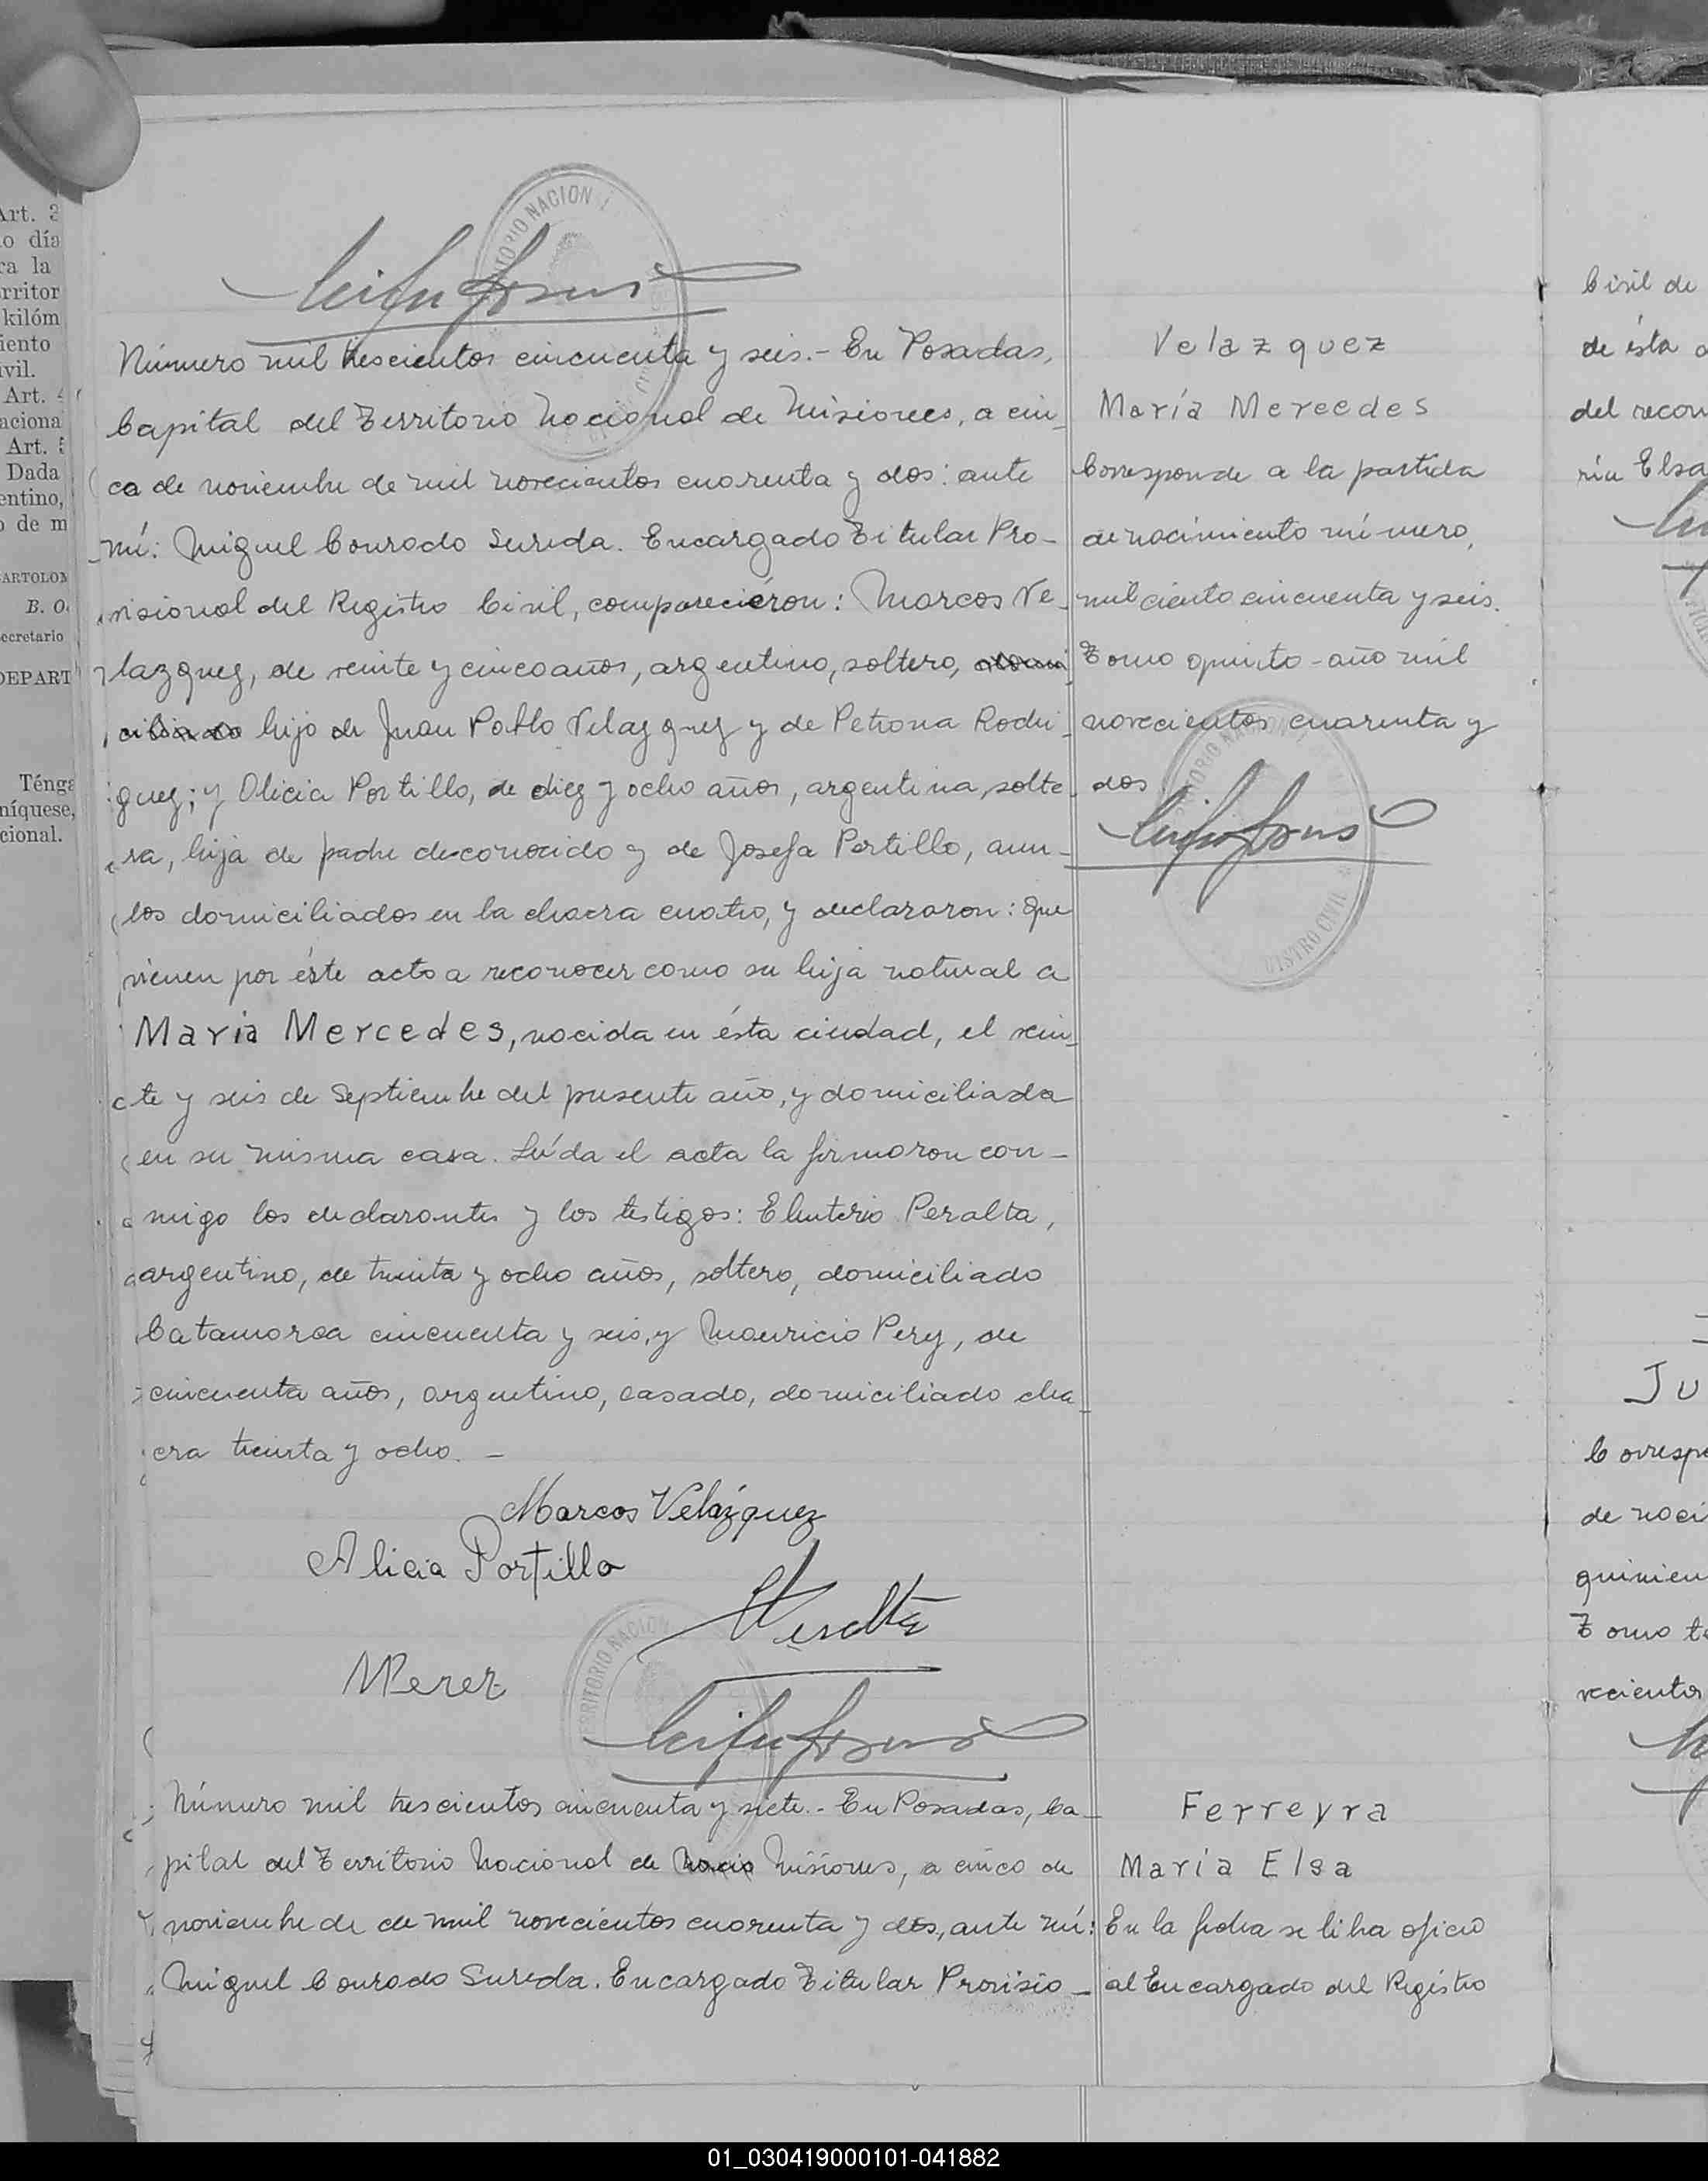 Art. 3
o día
ra la
rritor
kilóm
iento
ivil.
Art. 4
aciona
Art. 5
Dada
entino,
o de m
BARTOLOM
B. O.
ecretario
DEPART
Ténga
níquese,
cional.
TERRITORIO NACIONAL
Número mil trescientos cincuenta y seis.- En Posadas,
Capital del Territorio Nacional de Misiones, a cin_
co de noviembre de mil novecientos cuarenta y dos: ante
mí: Miguel Conrado Sureda. Encargado Titular Pro-
visional del Registro Civil, comparecieron: Marcos Ve_
lazquez, de veinte y cinco años, argentino, soltero, domi_
ciliado hijo de Juan Pablo Velazquez y de Petrona Rodri_
guez; y Alicia Portillo, de diez y ocho años, argentina, solte_
ra, hija de padre desconocido y de Josefa Portillo, am_
bos domiciliados en la chacra cuatro, y declararon: que
vienen por éste acto a reconocer como su hija natural a
Maria Mercedes, nacida en ésta ciudad, el vein_
te y seis de Septiembre del presente año, y domiciliada
en su misma casa. Leída el acta la firmaron con_
migo los declarantes y los testigos: Eleuterio Peralta,
argentino, de treinta y ocho años, soltero, domiciliado
Catamarca cincuenta y seis, y Mauricio Perez, de
cincuenta años, argentino, casado, domiciliado cha_
cra treinta y ocho. -
Marcos Velázquez
Alicia Portillo
Peralta
MPerez
TERRITORIO NACIONAL
Número mil trescientos cincuenta y siete.- En Posadas, Ca_
pital del Territorio Nacional de Nacio Misiones, a cinco de
noviembre de de mil novecientos cuarenta y dos, ante mí:
Miguel Conrado Sureda. Encargado Titular Provisio_
Velazquez
María Mercedes
Corresponde a la partida
de nacimiento número,
mil ciento cincuenta y seis.
Tomo quinto - año mil
novecientos cuarenta y
dos
TERRITORIO NACIONAL
REGISTRO CIVIL
Ferreyra
María Elsa
En la fecha se libra oficio
al Encargado del Registro
Civil de
de ésta
del recon
ría Elsa
Ju
Corresp
de naci
quinien
Tomo t
vecientos
01_030419000101-041882